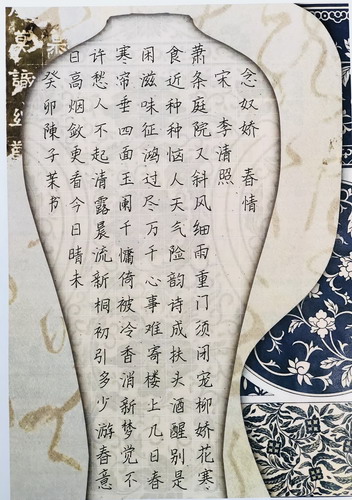 念奴娇 春情
宋 李清照
萧条庭院又斜风细雨重门须闭宠柳娇花寒
食近种种恼人天气险韵诗成扶头酒醒别是
闲滋味征鸿过尽万千心事难寄楼上几日春
寒帘垂四面玉阑干慵倚被冷香消新梦觉不
许愁人不起清露晨流新桐初引多少游春意
日高烟敛更看今日晴未
癸卯陳子茉书